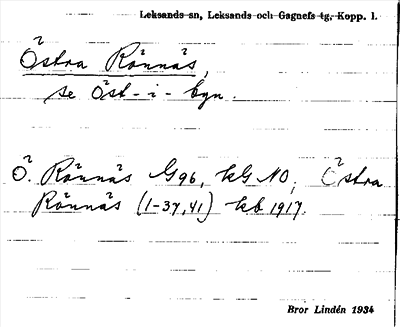 Leksands sn, Leksands och Gagnefs tg, Kopp. l.
Östra Rönnäs,
se Öst-i-byn.
Ö. Rönnäs G96, kG NO; Östra
Rönnäs (1-37,41) kb 1917.
Bror Lindén 1934